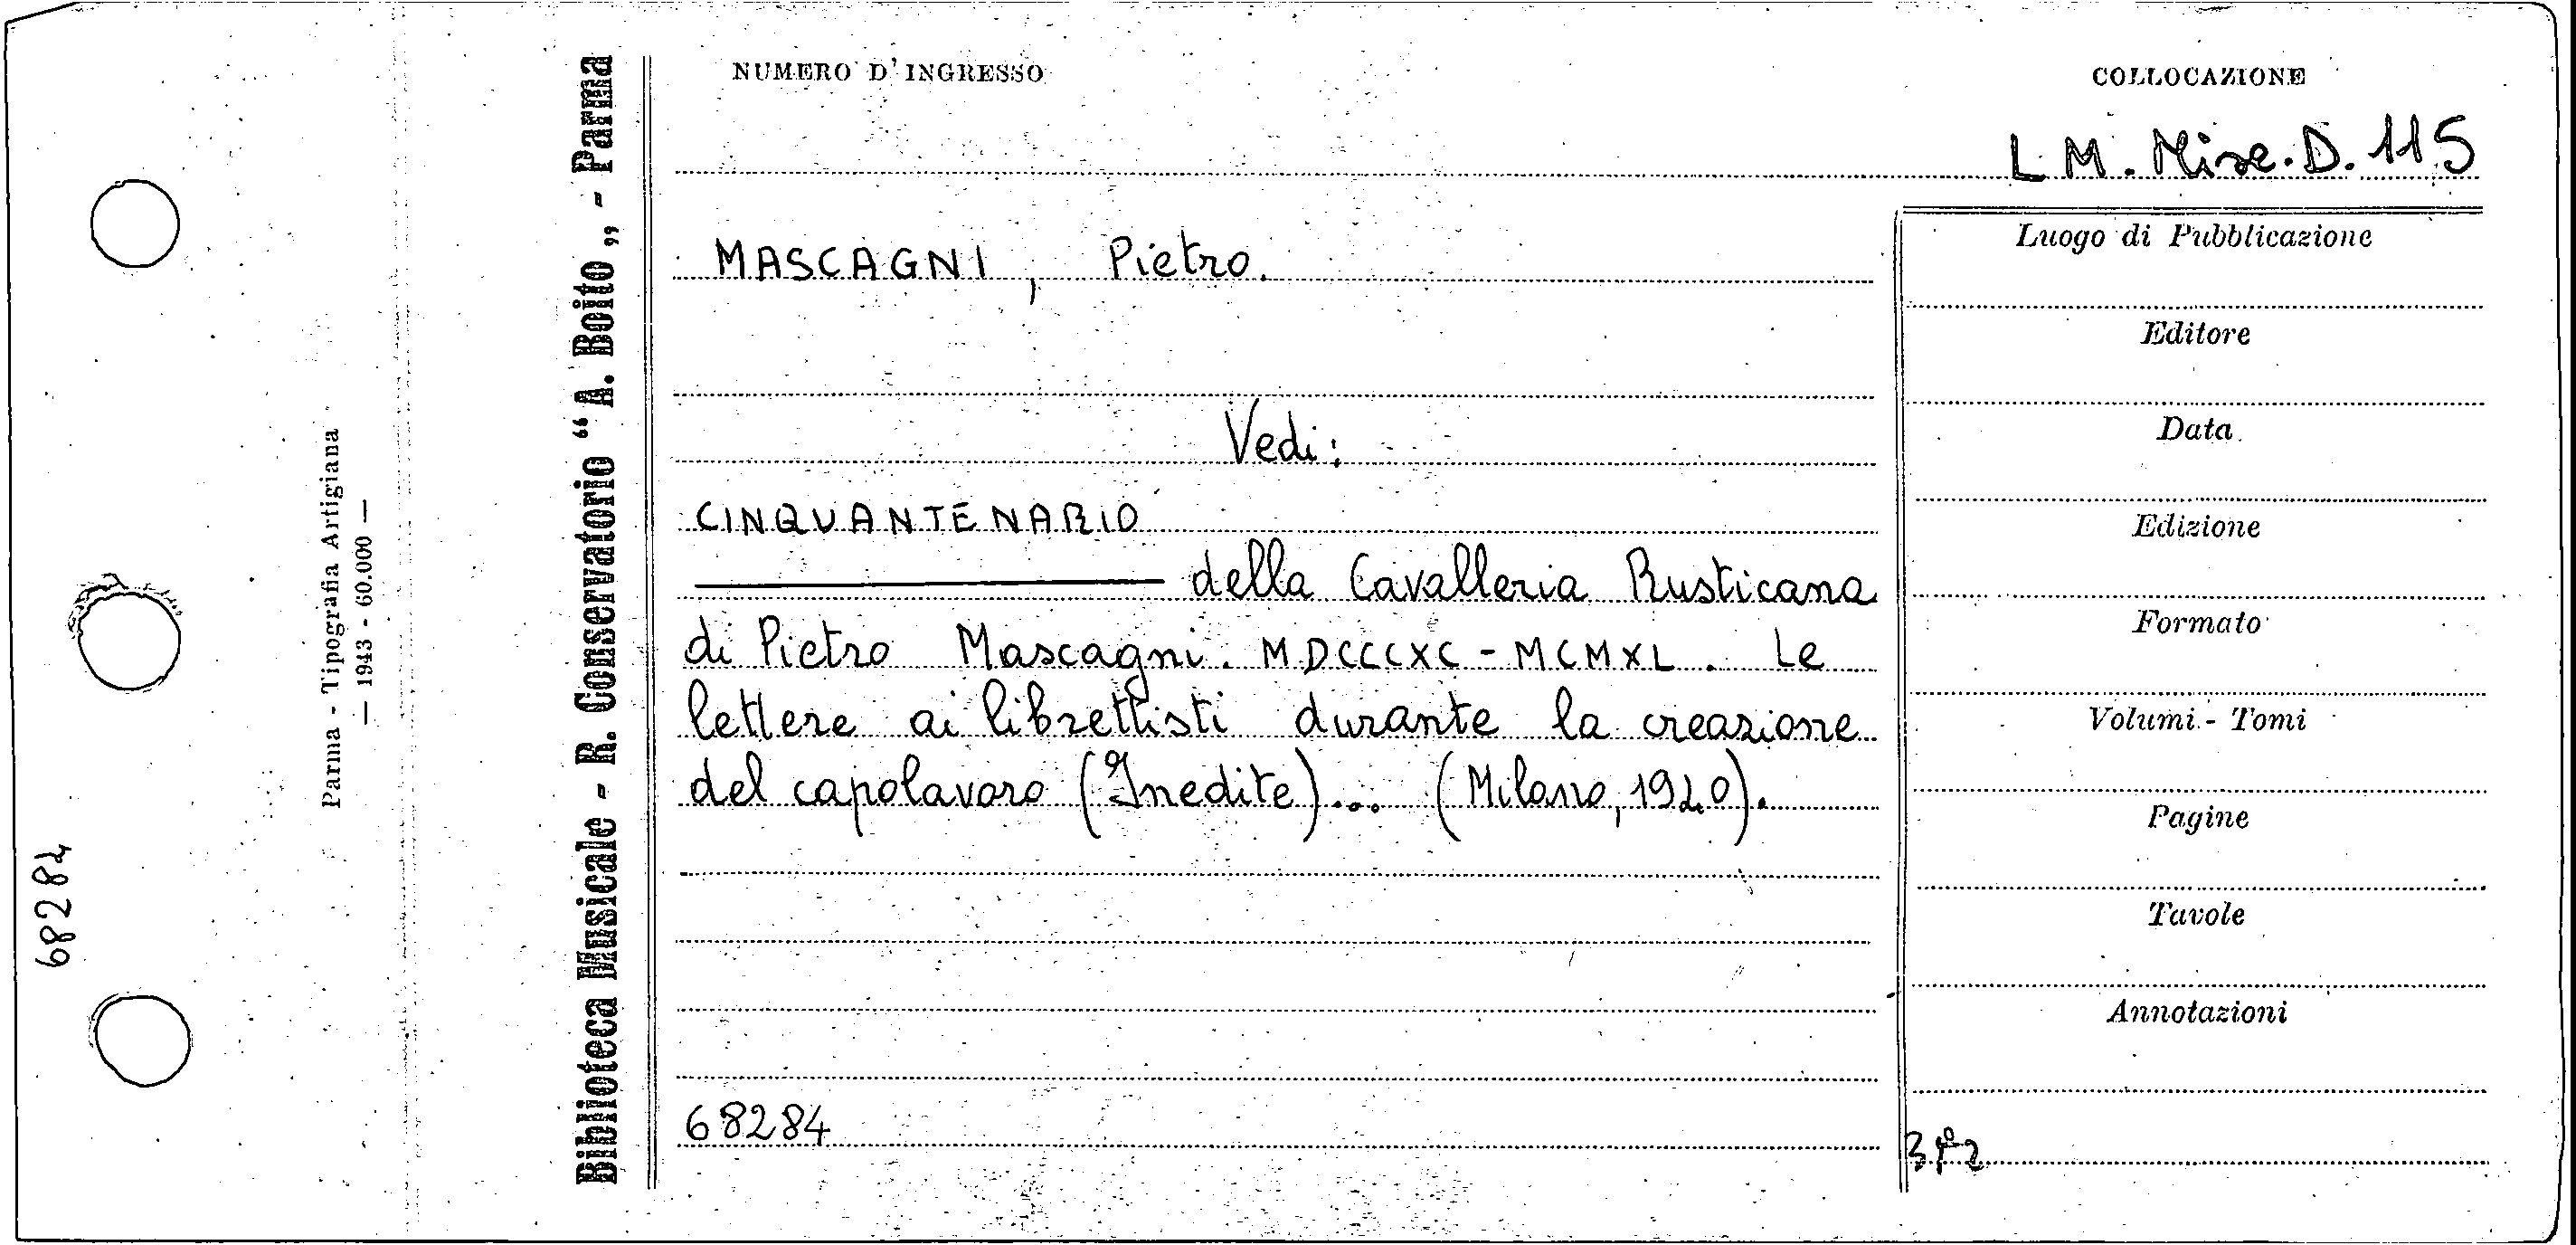 NUMERO D'INGRESSO
COLLOCAZIONE
L M. Misc. D. 115
MASCAGNI, Pietro.
Vedi:
CINQUANTENARIO
della Cavalleria Rusticana
di Pietro Mascagni. MDCCCXC - MCMXL. Le
lettere ai librettisti durante la creazione
del capolavoro (Inedite)... (Milano, 1940).
68284
Luogo di Pubblicazione
Editore
Data
Edizione
Formato
Volumi - Tomi
Pagine
Tavole
Annotazioni
Biblioteca Musicale - R. Conservatorio “A. Boito„ - Parma
Parma - Tipografia Artigiana
— 1943 - 60.000 —
68284